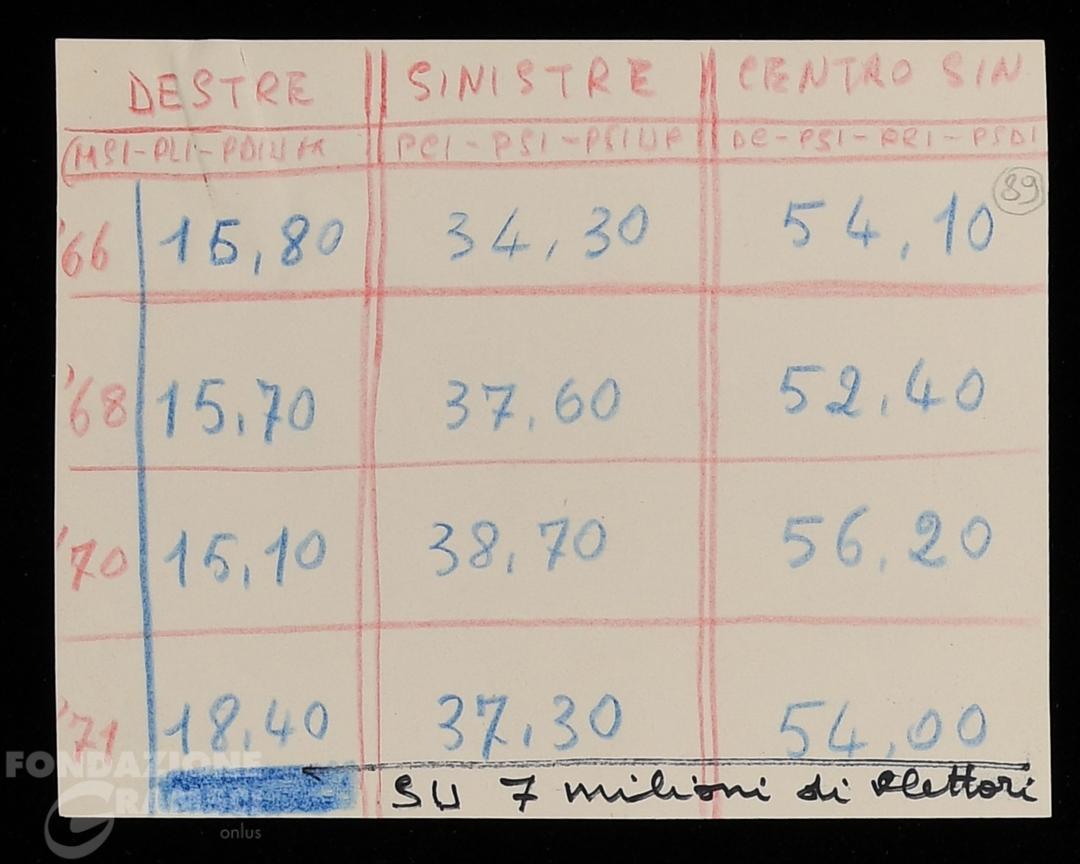 DESTRE SINISTRE CENTRO SIN
(MSI-PLI-PDIUM PCI-PSI-PSIUP DC-PSI-PRI-PSDI
89
'66 15,80 34,30 54,10
'68 15,70 37,60 52,40
'70 15,10 38,70 56,20
'71 18,40 37,30 54,00
SU 7 milioni di elettori
FONDAZIONE
GRAMSCI
onlus